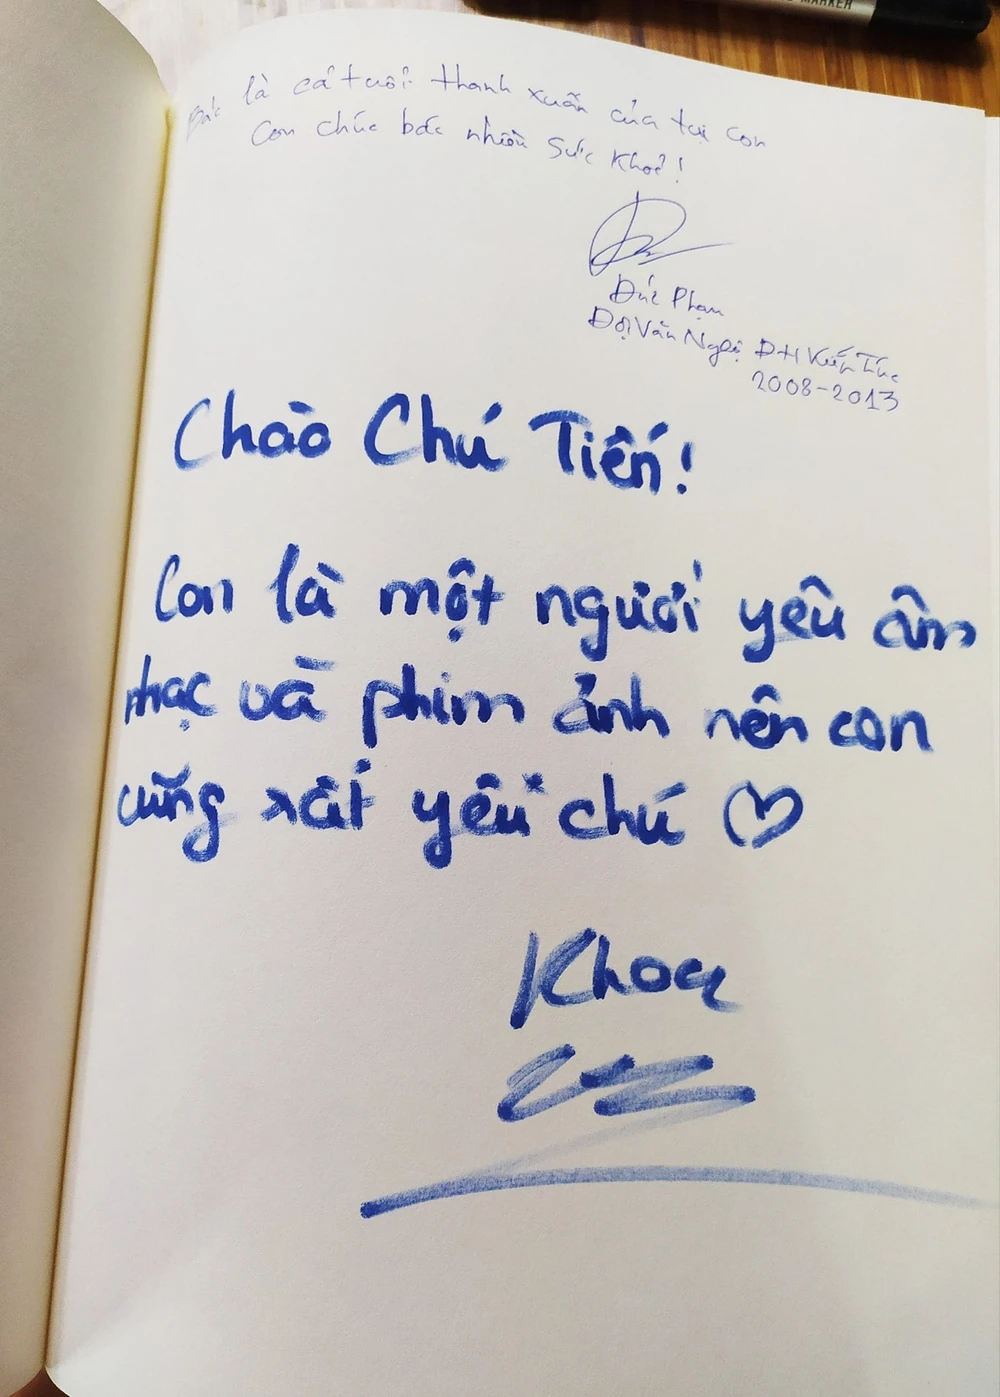 MARKER
Bác là cả tuổi thanh xuân của tụi con
Con chúc bác nhiều sức khoẻ!
Đức Phạm
Đội Văn Nghệ ĐH Kiến Trúc
2008-2013
Chào Chú Tiến!
Con là một người yêu âm
nhạc và phim ảnh nên con
cũng rất yêu chú ♡
Khoa